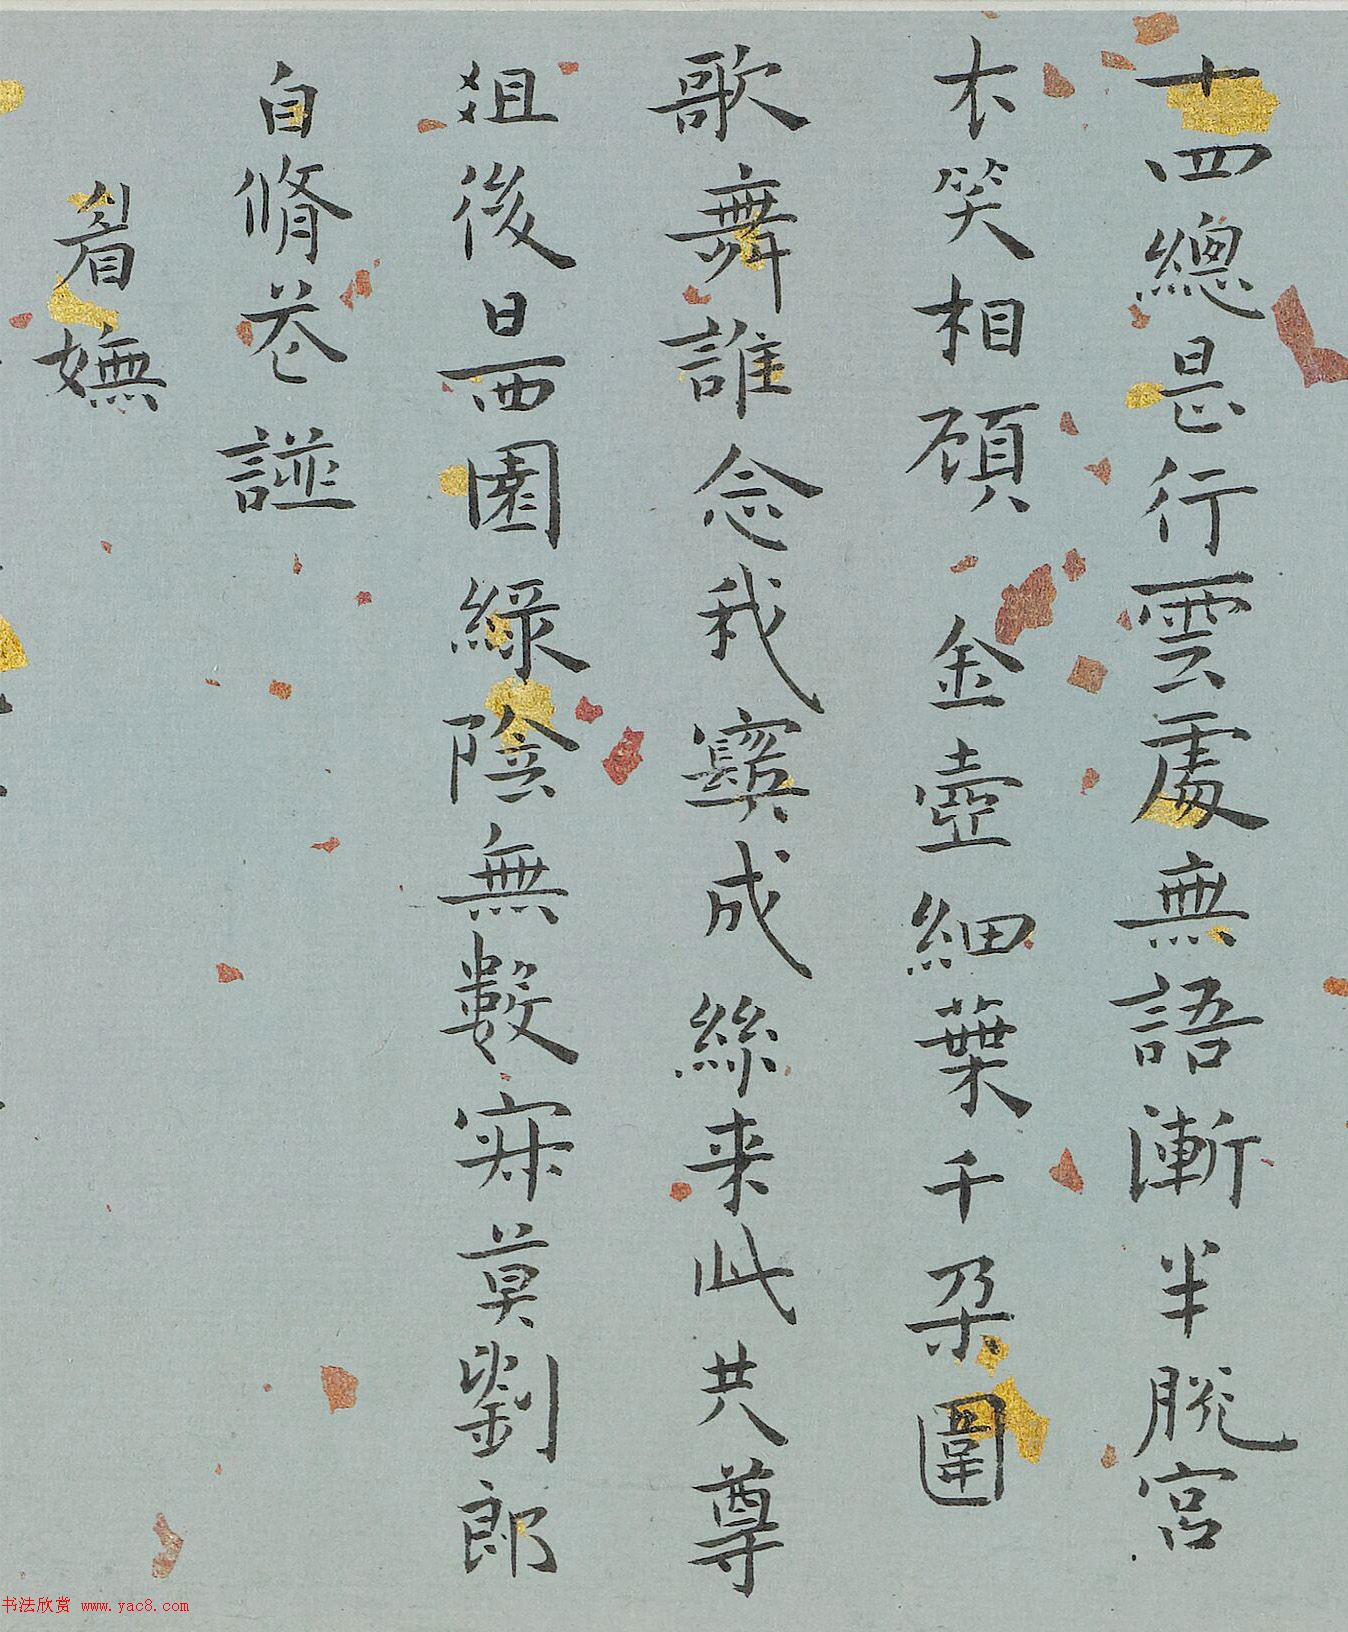 十四總是行雲處無語漸半脫宮
衣笑相顧金壺細葉千朵圍
歌舞誰念我鬢成絲来此共尊
俎後日西園綠陰無數寂寞劉郎
自脩花譜
眉嫵
书法欣赏 www.yac8.com